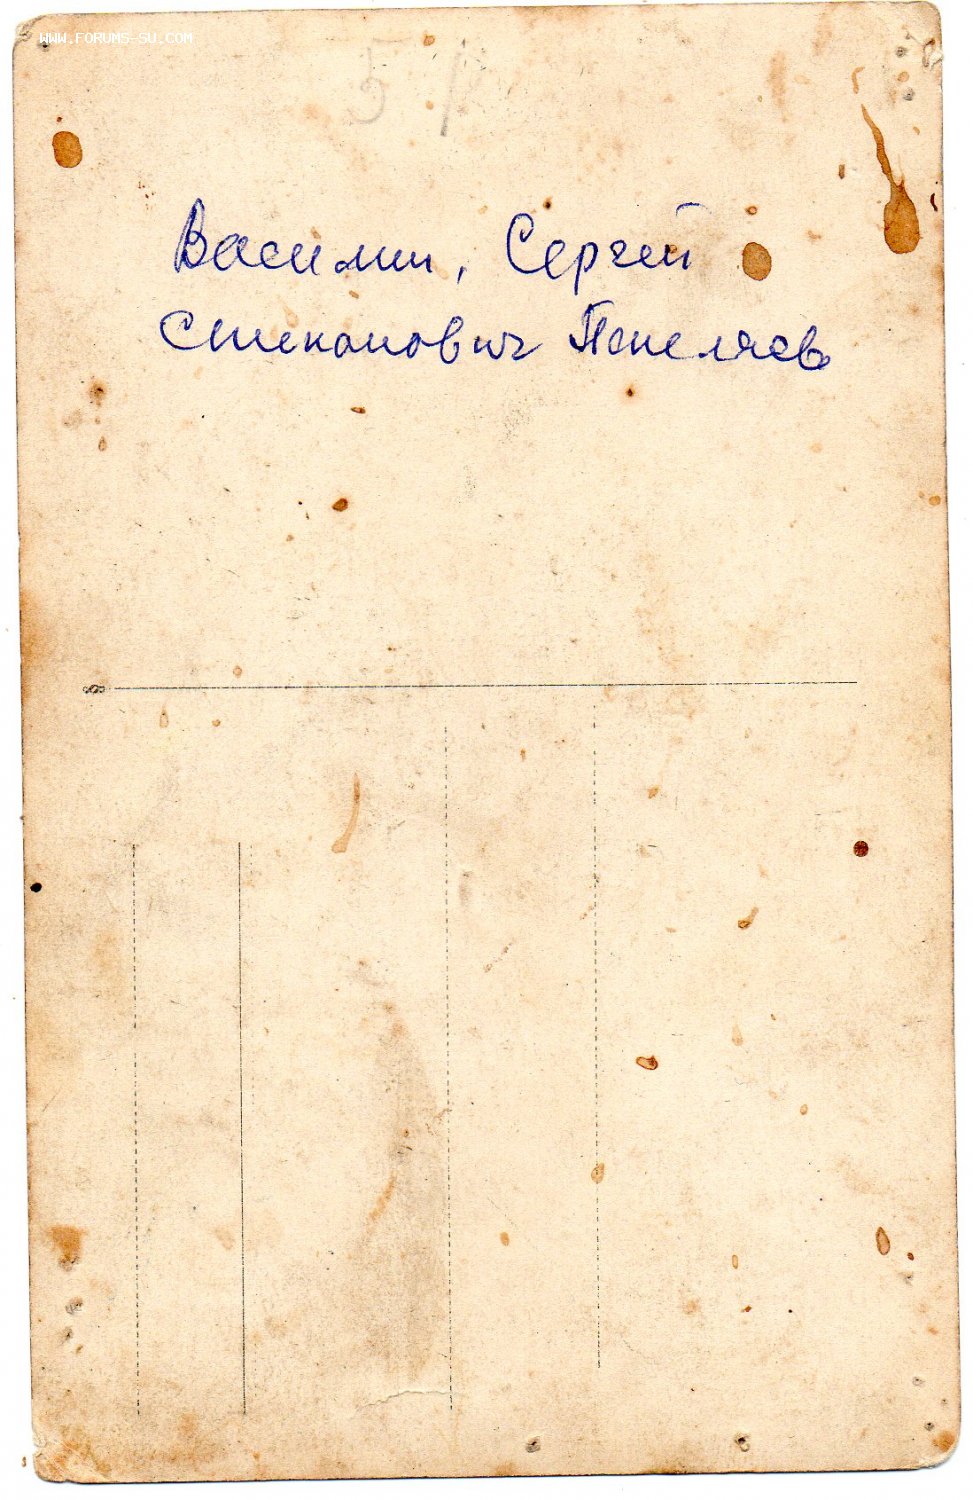 WWW.FORUMS-SU.COM
Василий, Сергей
Степанович Пепеляев